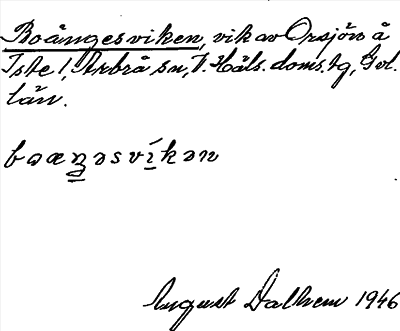 Boängesviken, vik av Orsjön å
Iste !, Arbrå sn, V. Häls. doms. tg, Gvl.
län.
bəæŋəsvíkən
August Dalhem 1946